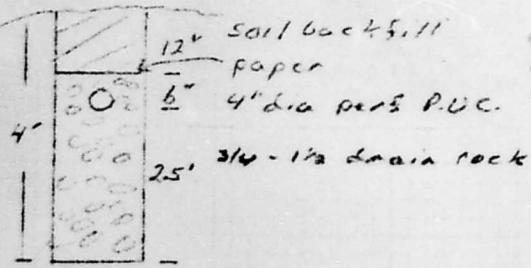 12" soil backfill
paper
6" 4" dia perf P.V.C.
4'
2.5' 3/4 - 1 1/2 drain rock